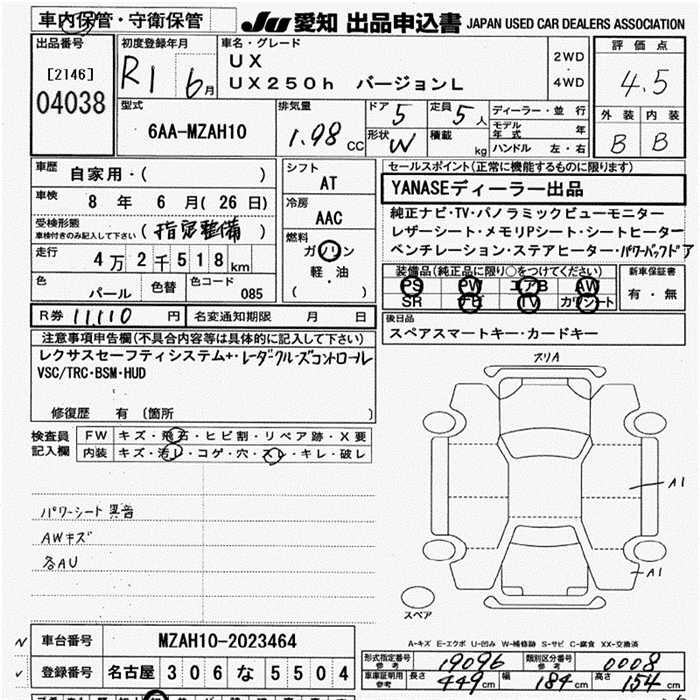 車内保管・守衛保管
JU 愛知 出品申込書 JAPAN USED CAR DEALERS ASSOCIATION
出品番号 [2146] 04038
初度登録年月 R1 6月
車名・グレード UX
UX250h バージョンL
2WD・4WD
評価点 4.5
外装 内装
B B
型式 6AA-MZAH10
排気量 1.98 CC
ドア 5
形状 W
定員 5 人
積載 kg
ディーラー・並行
モデル年式 年
ハンドル 左・右
車歴 自家用・( )
車検 8年 6月(26日)
受検形態
車検付きのみ記入して下さい (指定整備)
走行 4万2千518km
色 パール 色替 色コード 085
シフト AT
冷房 AAC
燃料 ガソリン
軽・油
( )
R券 11,110 円 名変通知期限 月 日
セールスポイント(正常に機能するものに限ります)
YANASEディーラー出品
純正ナビ・TV・パノラミックビューモニター
レザーシート・メモリPシート・シートヒーター
ベンチレーション・ステアヒーター・パワーバックドア
装備品(純正品に限り○をつけてください)
PS PW エアB AW
SR ナビ TV カワシート
新車保証書
有・無
後日品
スペアスマートキー・カードキー
注意事項申告欄(不具合内容等は具体的に記入して下さい)
レクサスセーフティシステム+・レーダークルーズコントロール
VSC/TRC・BSM・HUD
修復歴 有(箇所 )
検査員記入欄
FW キズ・飛石・ヒビ割・リペア跡・X要
内装 キズ・汚レ・コゲ・穴・スレ・キレ・破レ
パワーシート異音
AWキズ
各AU
スリA
A1
A1
スペア
A-キズ E-エクボ U-凹み W-補修跡 S-サビ C-腐食 XX-交換済
車台番号 MZAH10-2023464
登録番号 名古屋 306 な 5504
形式指定番号 参考 19096 類別区分番号 参考 0008
車庫証明用 参考 長さ 449cm 幅 184cm 高さ 154cm